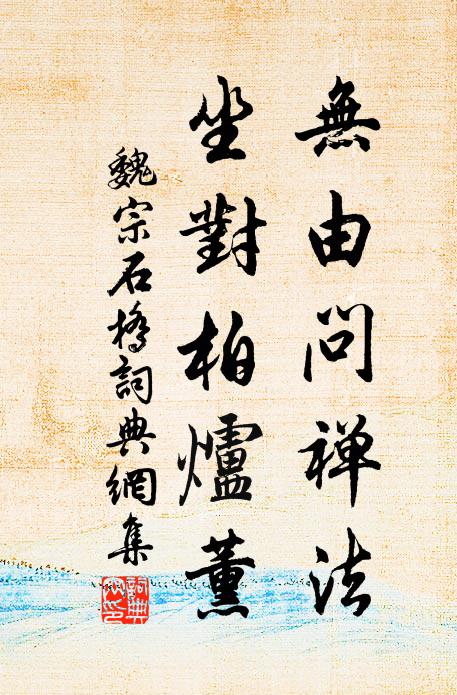 無由問禅法
坐對柏爐薰
魏宗石橋詞典網集